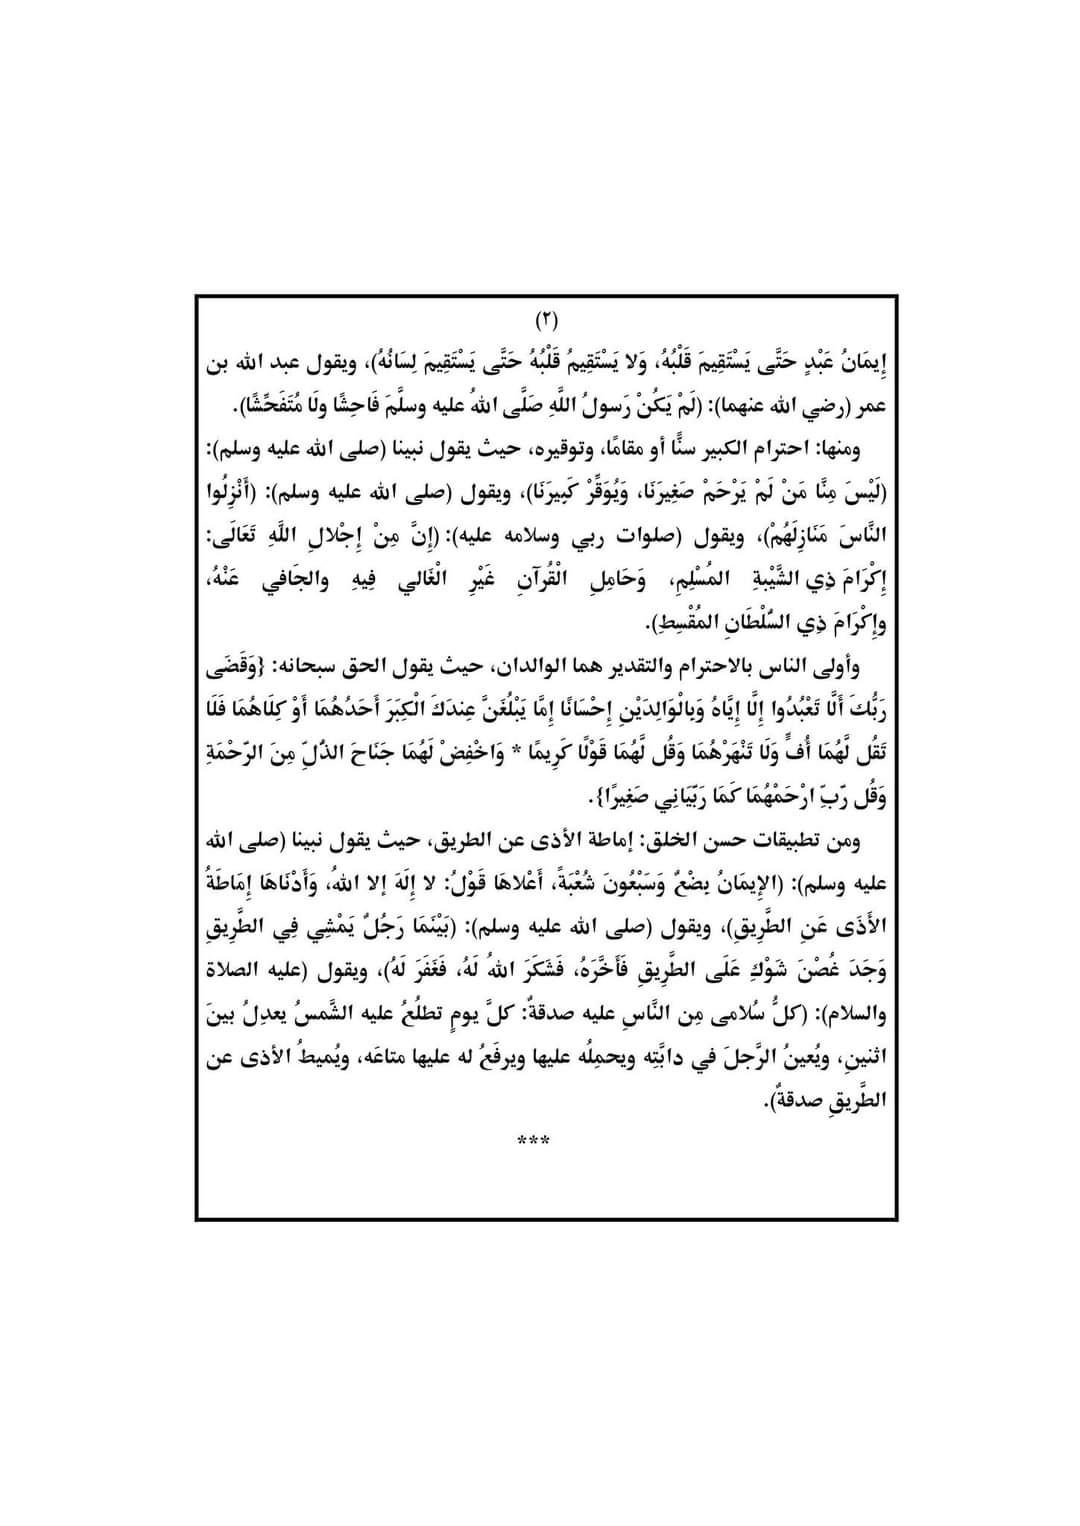 (٢)
إِيمَانُ عَبْدٍ حَتَّى يَسْتَقِيمَ قَلْبُهُ، وَلا يَسْتَقِيمُ قَلْبُهُ حَتَّى يَسْتَقِيمَ لِسَانُهُ)، ويقول عبد الله بن
عمر (رضي الله عنهما): (لَمْ يَكُنْ رَسولُ اللَّهِ صَلَّى اللهُ عليه وسلَّمَ فَاحِشًا ولَا مُتَفَحِّشًا).
ومنها: احترام الكبير سنًّا أو مقامًا، وتوقيره، حيث يقول نبينا (صلى الله عليه وسلم):
(لَيْسَ مِنَّا مَنْ لَمْ يَرْحَمْ صَغِيرَنَا، وَيُوَقِّرْ كَبِيرَنَا)، ويقول (صلى الله عليه وسلم): (أَنْزِلُوا
النَّاسَ مَنَازِلَهُمْ)، ويقول (صلوات ربي وسلامه عليه): (إِنَّ مِنْ إِجْلالِ اللَّهِ تَعَالَى:
إِكْرَامَ ذِي الشَّيْبةِ المُسْلِمِ، وَحَامِلِ الْقُرآنِ غَيْرِ الْغَالي فِيهِ والجَافي عَنْهُ،
وإِكْرَامَ ذِي السُّلْطَانِ المُقْسِطِ).
وأولى الناس بالاحترام والتقدير هما الوالدان، حيث يقول الحق سبحانه: {وَقَضَى
رَبُّكَ أَلَّا تَعْبُدُوا إِلَّا إِيَّاهُ وَبِالْوَالِدَيْنِ إِحْسَانًا إِمَّا يَبْلُغَنَّ عِندَكَ الْكِبَرَ أَحَدُهُمَا أَوْ كِلَاهُمَا فَلَا
تَقُل لَّهُمَا أُفٍّ وَلَا تَنْهَرْهُمَا وَقُل لَّهُمَا قَوْلًا كَرِيمًا * وَاخْفِضْ لَهُمَا جَنَاحَ الذُّلِّ مِنَ الرَّحْمَةِ
وَقُل رَّبِّ ارْحَمْهُمَا كَمَا رَبَّيَانِي صَغِيرًا}.
ومن تطبيقات حسن الخلق: إماطة الأذى عن الطريق، حيث يقول نبينا (صلى الله
عليه وسلم): (الإِيمَانُ بِضْعٌ وَسَبْعُونَ شُعْبَةً، أَعْلاهَا قَوْلُ: لا إِلَهَ إلا اللهُ، وَأَدْنَاهَا إِمَاطَةُ
الأَذَى عَنِ الطَّرِيقِ)، ويقول (صلى الله عليه وسلم): (بَيْنَمَا رَجُلٌ يَمْشِي فِي الطَّرِيقِ
وَجَدَ غُصْنَ شَوْكٍ عَلَى الطَّرِيقِ فَأَخَّرَهُ، فَشَكَرَ اللهُ لَهُ، فَغَفَرَ لَهُ)، ويقول (عليه الصلاة
والسلام): (كلُّ سُلامى مِن النَّاسِ عليه صدقةٌ: كلَّ يومٍ تطلُعُ عليه الشَّمسُ يعدِلُ بينَ
اثنينِ، ويُعينُ الرَّجلَ في دابَّتِه ويحمِلُه عليها ويرفَعُ له عليها متاعَه، ويُميطُ الأذى عن
الطَّريقِ صدقةٌ).
***